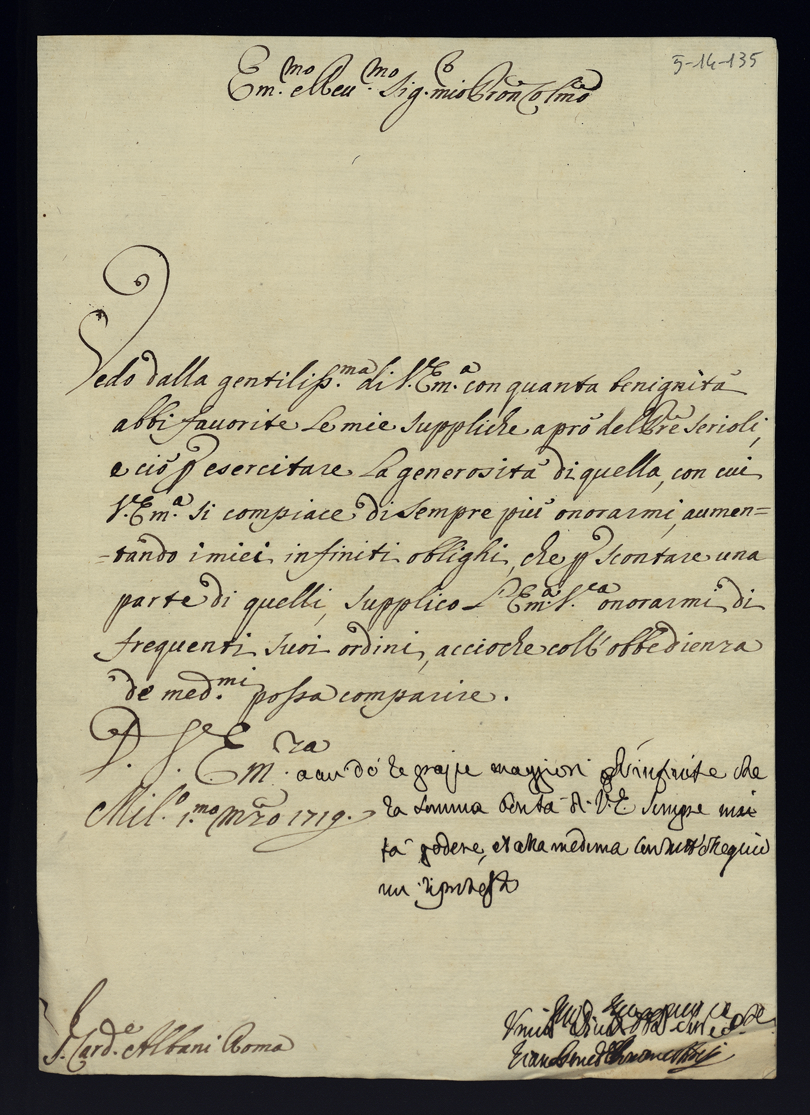 5-14-135
Em.mo e Reu.mo Sig.r mio Pron Colmo
Vedo dalla gentiliss.ma di V. Em.a con quanta benignità
abbi fauorite le mie suppliche a prò del Pre Serioli,
e ciò p esercitare la generosità di quella, con cui
V. Em.a si compiace di sempre più onorarmi, aumen=
=tando i miei infiniti oblighi, che p scontare una
parte di quelli, supplico L'Em.a V.ra onorarmi di
frequenti suoi ordini, acciòche coll'obbedienza
de med.mi possa comparire.
D. V.E Em.za
a cui dò le grazie maggiori che
Mil.o 1.mo Mrzo 1719.
la somma bontà di V.E sempre mi
fà godere, et alla medema con
mi
S. Card.e Albani Roma